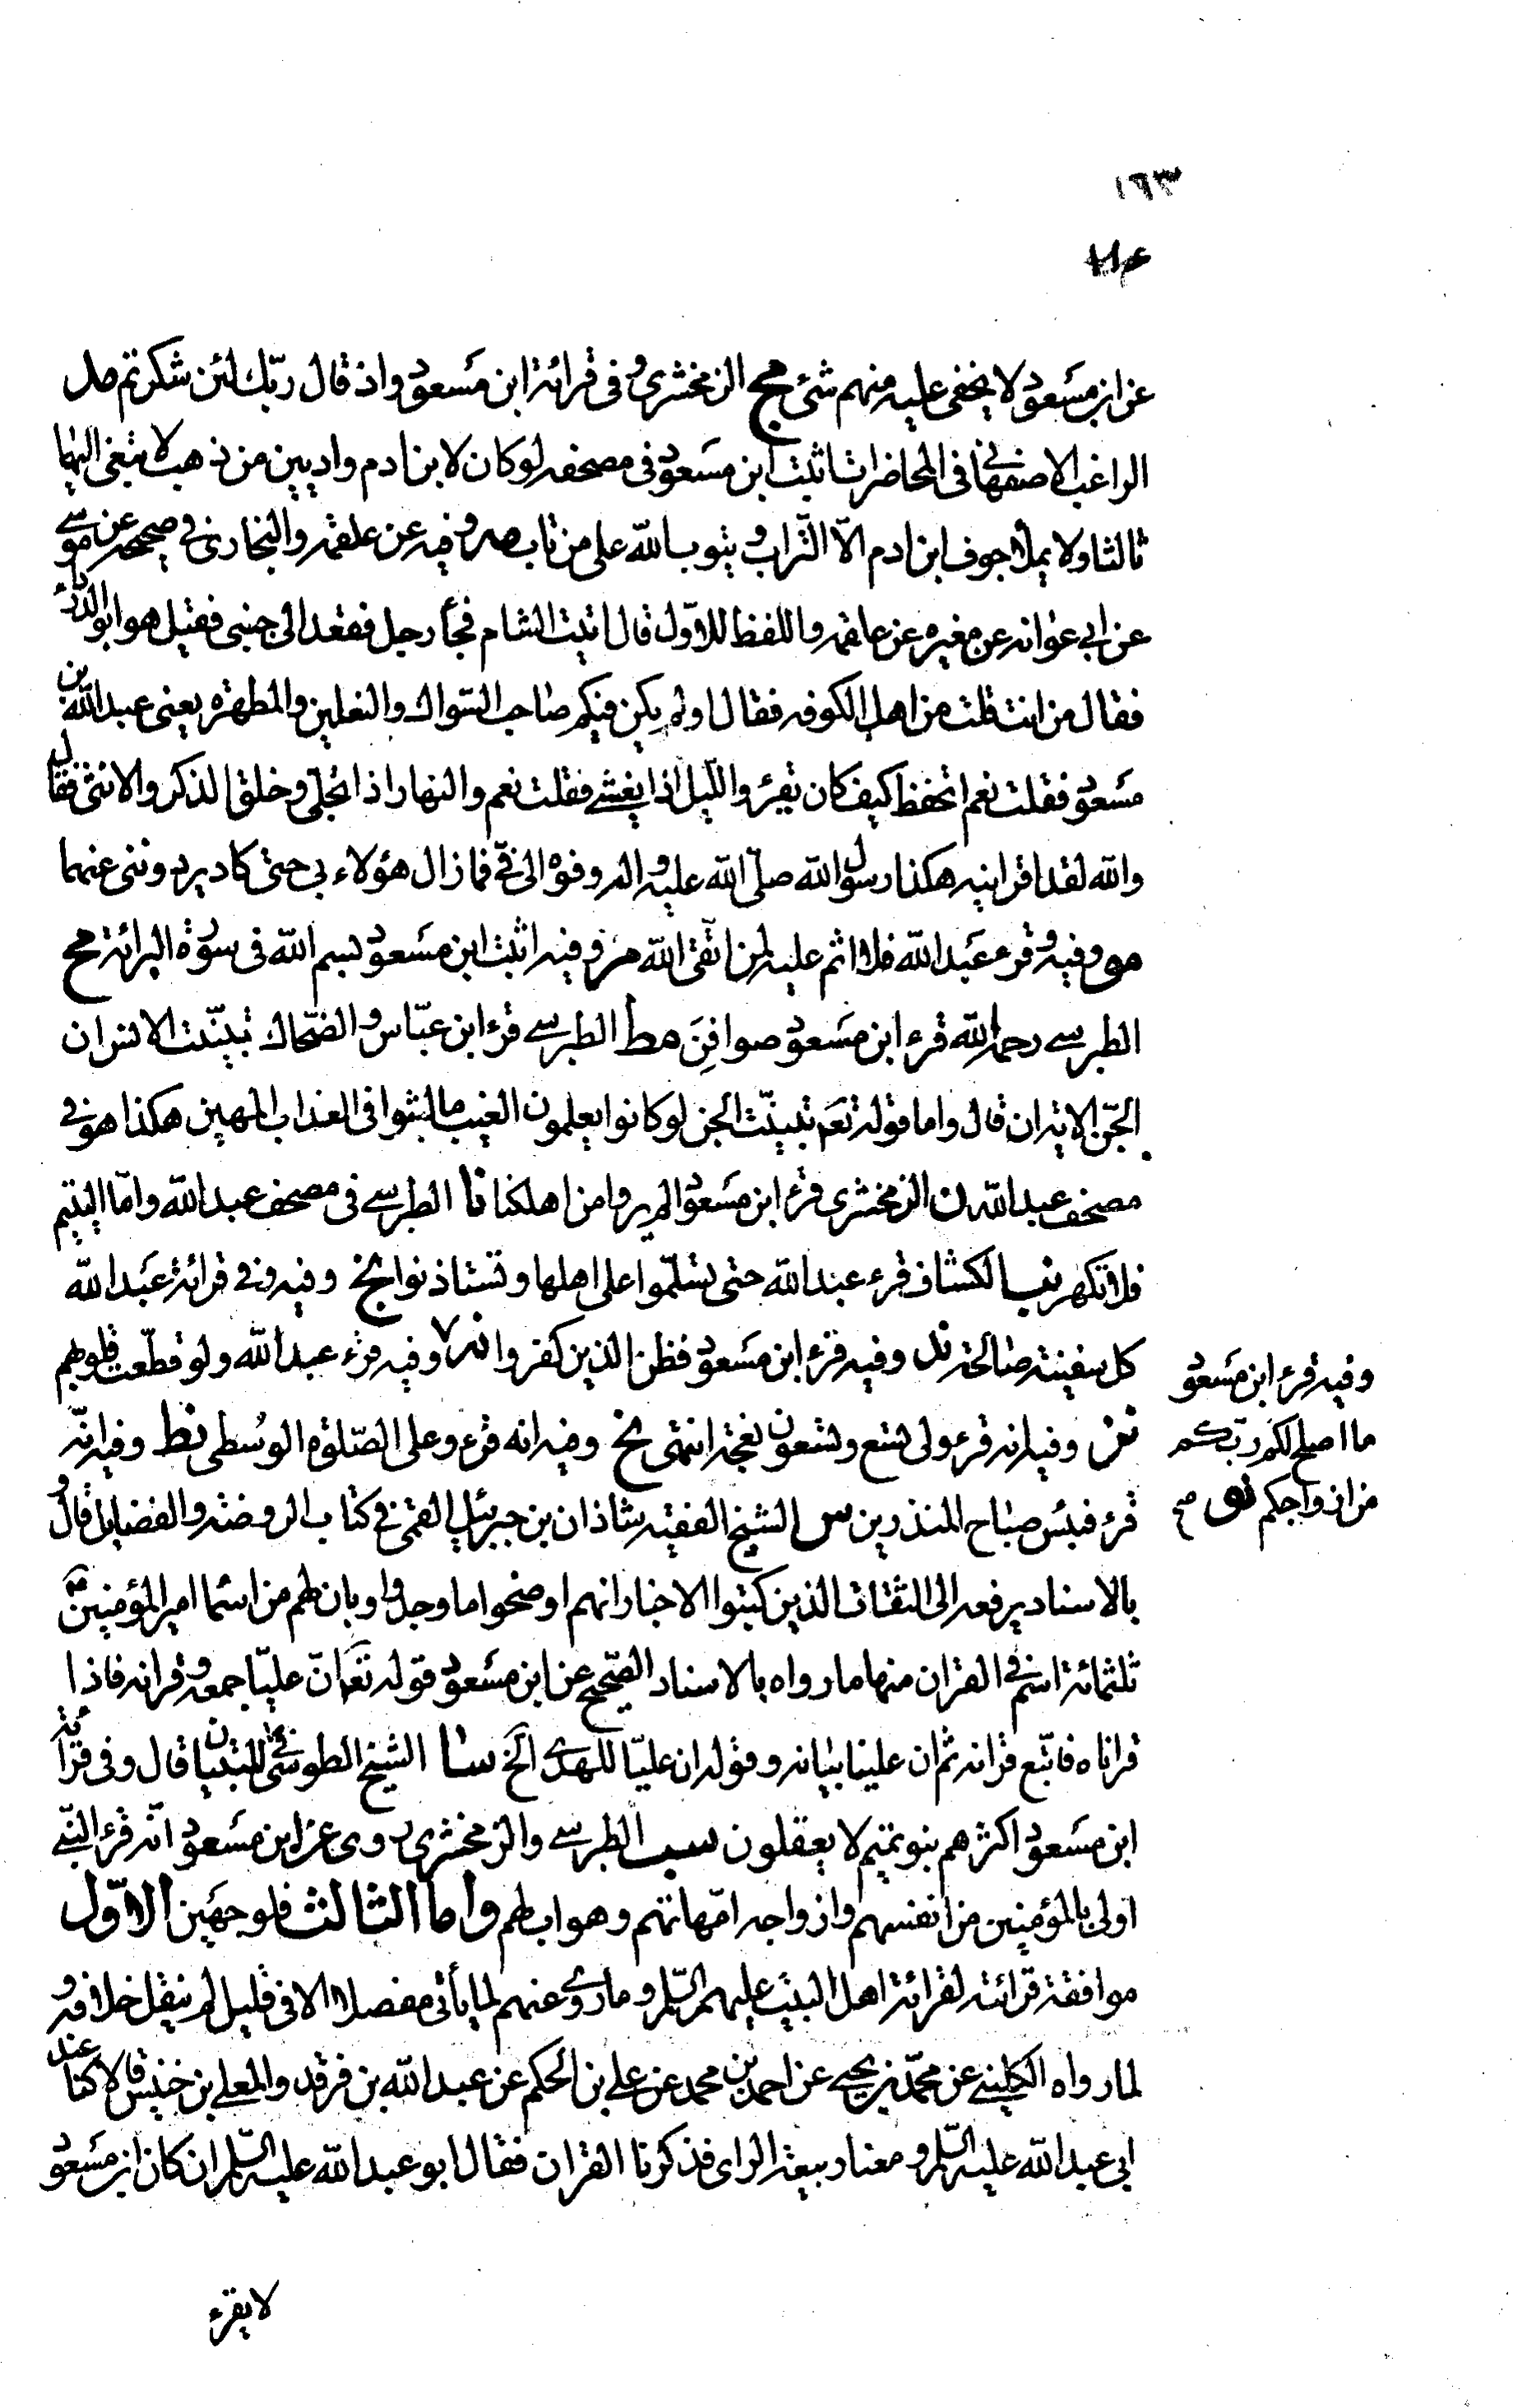 ١٦٣
عن ابن مسعود لا يخفى عليه منهم شئ مج الزمخشرى و فى قرائة ابن مسعود واذ قال ربّك لئن شكرتم مد
الراغب الاصفهانى فى المحاضرات اثبت ابن مسعود فى مصحفه لو كان لابن ادم واديين من ذهب لابتغى اليهما
ثالثا ولا يملأ جوف ابن ادم الّا التّراب و يتوب الله على من تاب مه و فيه عن علقمه والبخارى فى صحيحه عن موسى
عن ابى عوانه عن مغيره عن علقمه واللفظ للاوّل قال اتيت الشام فجأ رجل فقعد الى جنبى فقيل هو ابو الدرداء
فقال من انت قلت من اهل الكوفه فقال اولم يكن فيكم صاحب السّواك والنعلين والمطهره يعنى عبد الله بن
مسعود فقلت نعم اتحفظ كيف كان يقرء والليل اذا يغشى فقلت نعم والنهار اذا تجلّى وخلق الذكر والانثى فقال
والله لقد اقرانيه هكذا رسول الله صلّى الله عليه و اله وفوه الى فىّ فما زال هؤلاء بى حتى كاد يردوننى عنهما
مو وفيه و قرء عبد الله فلا اثم عليه لمن اتّقى الله مز وفيه اثبت ابن مسعود بسم الله فى سورة البرائة مح
الطبرسى رحمه الله قرء ابن مسعود صوافِنَ مط الطبرسى قرء ابن عبّاس و الضّحاك تبيّنت الانس ان
الجنّ الاية ان قال واما قوله تعم تبيّنت الجن لو كانوا يعلمون الغيب ما لبثوا فى العذاب المهين هكذا هو فى
مصحف عبد الله ن الزمخشرى قرء ابن مسعود الم يروا من اهلكنا نا الطبرسى فى مصحف عبد الله وامّا اليتيم
فلا تكهر نب الكشاف قرء عبد الله حتى تسلّموا على اهلها وتستاذنوا نج وفيه و فى قرائة عبد الله
كل سفينة صالحة ند وفيه قرء ابن مسعود فظن الذين كفروا نه وفيه قرء عبد الله ولو قطّعت قلوبهم
نو وفيه انه قرء ولى تسع وتسعون نعجة انثى نح وفيه انه قرء وعلى الصّلوة الوسطى نط وفيه انّه
قرء فبئس صباح المنذرين س الشيخ الفقيه شاذان بن جبرئيل القمى فى كتاب الروضة والفضايل قال و
بالاسناد يرفعه الى الثقات الذين كتبوا الاخبار انهم اوضحوا ما وجدوا و بان لهم من اسما امير المؤمنين
ثلثمائة اسم فى القران منها ما رواه بالاسناد الصّحيح عن ابن مسعود قوله تعم انّ عليّا جمعه و قرانه فاذا
قراناه فاتّبع قرانه ثم ان علينا بيانه وقوله ان عليّا للهدى الخ سا الشيخ الطوسى فى التبيان قال وفى قرائة
ابن مسعود اكثرهم بنو تميم لا يعقلون سب الطبرسى والزمخشرى روى عن ابن مسعود انّه قرء النبّى
اولى بالمؤمنين من انفسهم وازواجه امّهاتهم وهو اب لهم واما الثالث فلوجهين الاوّل
موافقة قرائته لقرائة اهل البيت عليهم السّلم و ما روى عنهم لما يأتى مفصلا الا فى قليل لم ينقل خلافه و
لما رواه الكلينى عن محمّد بن يحيى عن احمد بن محمد عن على بن الحكم عن عبد الله بن فرقد والمعلى بن خنيس قالا كنا عند
ابى عبد الله عليه السّلم و معنا ربيعة الراى فذكرنا القران فقال ابو عبد الله عليه السّلم ان كان ابن مسعود
وفيه قرء ابن مسعود
ما اصلح لكم ربّكم
من ازواجكم نه صح
لا يقرء